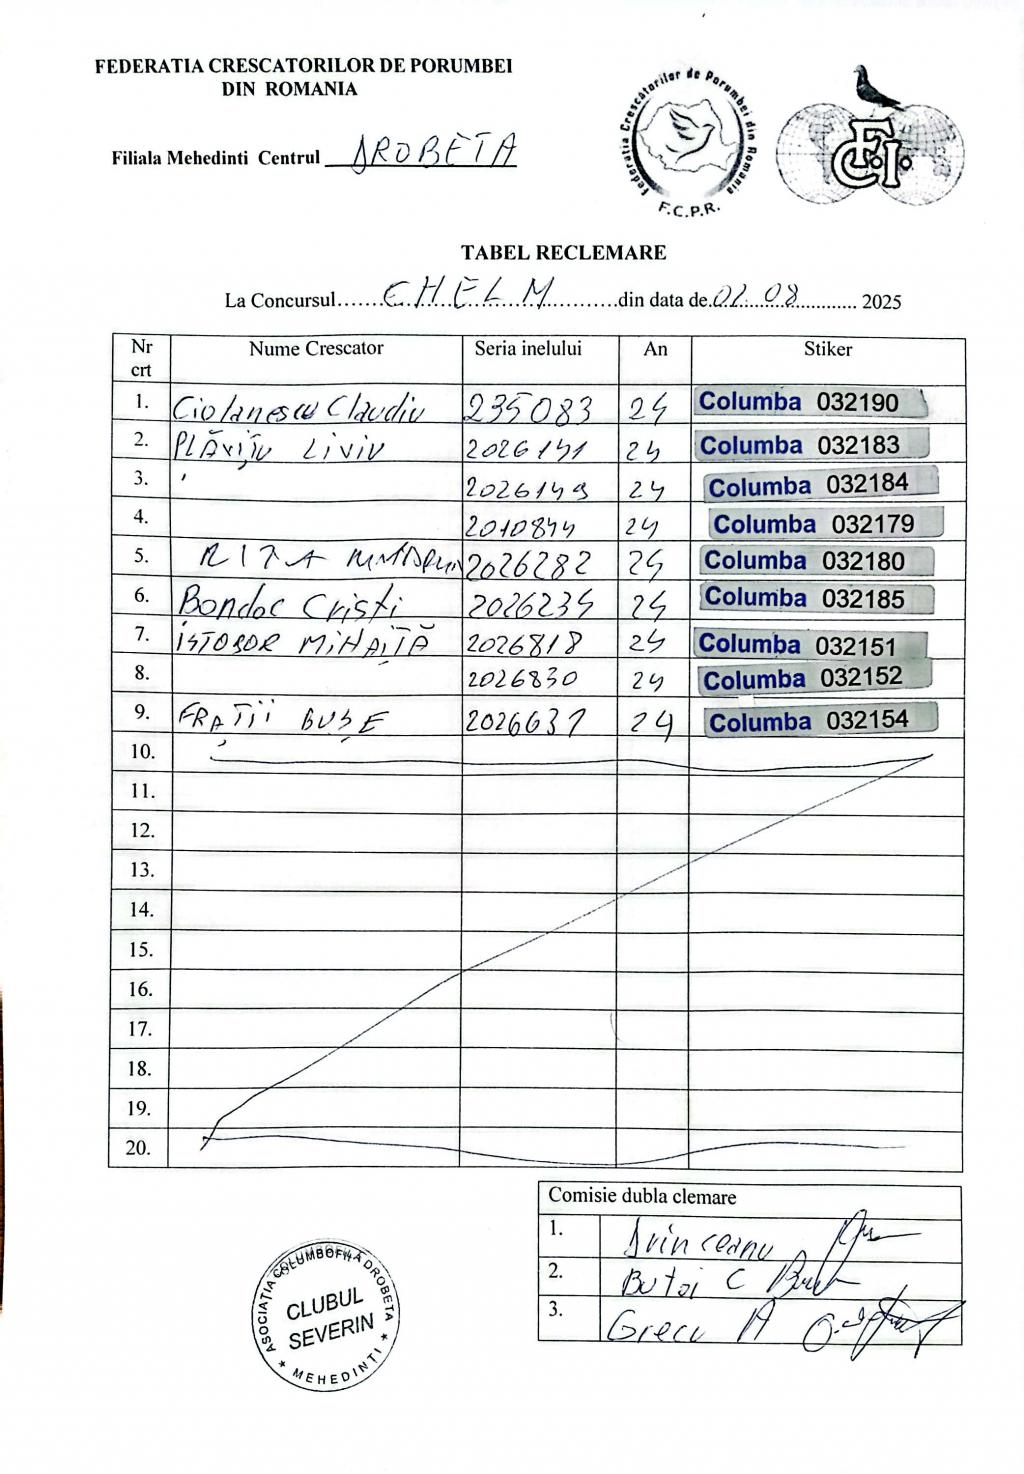 FEDERATIA CRESCATORILOR DE PORUMBEI
DIN ROMANIA
Filiala Mehedinti Centrul DROBETA
Federatia Crescatorilor de Porumbei din Romania
F.C.P.R.
F.C.I.
TABEL RECLEMARE
La Concursul......CHELM..........din data de.02.08............ 2025
Nr crt Nume Crescator Seria inelului An Stiker
1. Ciolanescu Claudiu 235083 24 Columba 032190
2. PLĂVIȚU LIVIU 2026141 24 Columba 032183
3. 2026149 24 Columba 032184
4. 2010844 24 Columba 032179
5. RITA 2026282 24 Columba 032180
6. Bondoc Cristi 2026234 24 Columba 032185
7. ISTODOR MIHAIȚĂ 2026818 24 Columba 032151
8. 2026830 24 Columba 032152
9. FRAȚII BUȘE 2026631 24 Columba 032154
10.
11.
12.
13.
14.
15.
16.
17.
18.
19.
20.
Comisie dubla clemare
1. Drinceanu
2. Butoi C
3. Grecu A
ASOCIATIA COLUMBOFILA DROBETA
CLUBUL
SEVERIN
* MEHEDINTI *